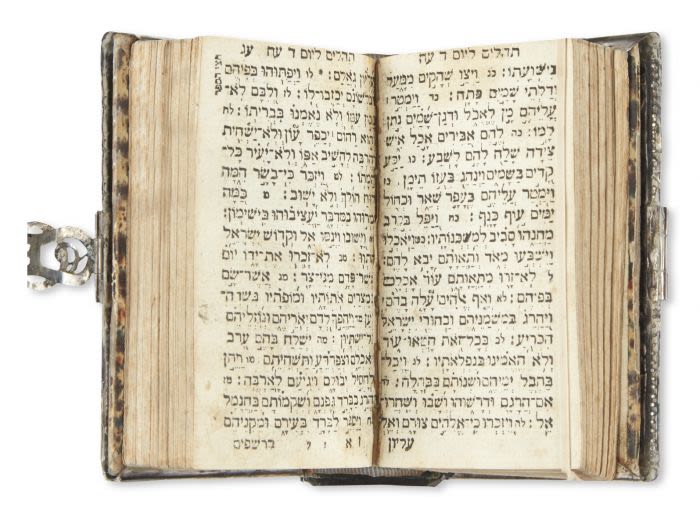 תהלים ליום ד עח
בישועתו: כג ויצו שחקים ממעל
ודלתי שמים פתח: כד וימטר
עליהם מן לאכל ודגן שמים נתן
למו: כה לחם אבירים אכל איש
צידה שלח להם לשבע: כו יסע
קדים בשמים וינהג בעזו תימן: כז
וימטר עליהם כעפר שאר וכחול
ימים עוף כנף: כח ויפל בקרב
מחנהו סביב למשכנותיו: כט ויאכלו
וישבעו מאד ותאותם יבא להם
ל לא־זרו מתאותם עוד אכלם
בפיהם: לא ואף אלהים עלה בהם
ויהרג במשמניהם ובחורי ישראל
הכריע: לב בכל־זאת חטאו־עוד
ולא האמינו בנפלאתיו: לג ויכל־
בהבל ימיהם ושנותם בבהלה: לד
אם־הרגם ודרשוהו ושבו ושחרו־
אל: לה ויזכרו כי־אלהים צורם ואל
עליון
תהלים ליום ד עח עג
חצי הספר
עליון גואלם: לו ויפתוהו בפיהם
ובלשונם יכזבו־לו: לז ולבם לא־
נכון עמו ולא נאמנו בבריתו: לח
והוא רחום יכפר עון ולא־ישחית
והרבה להשיב אפו ולא־יעיר כל־
חמתו: לט ויזכר כי־בשר המה
רוח הולך ולא ישוב: מ כמה
ימרוהו במדבר יעציבוהו בישימון:
וישובו וינסו אל וקדוש ישראל
התוו: מב לא־זכרו את־ידו יום
אשר־פדם מני־צר: מג אשר־שם
במצרים אתותיו ומופתיו בשדה־
ויהפך לדם יאריהם ונוזליהם
בל־ישתיון: מה ישלח בהם ערב
ויאכלם וצפרדע ותשחיתם: מו ויתן
לחסיל יבולם ויגיעם לארבה: מז
יהרג בברד גפנם ושקמותם בחנמל
ויסגר לברד בעירם ומקניהם
ברשפים